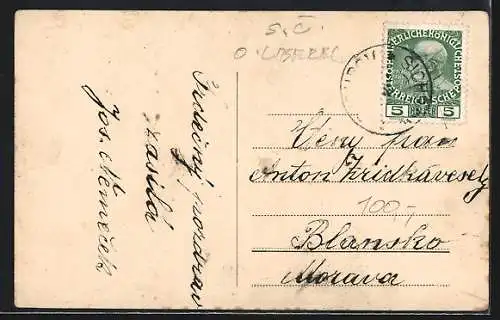 S. Č.
KAISERLICHE KÖNIGLICHE
ÖSTERREICHISCHE POST
5 HELLER 5
Srdečný pozdrav
zasílá
Jos. Němeček
Ctěný pan
Anton Zridkáveselý
100,-
Blansko
Morava